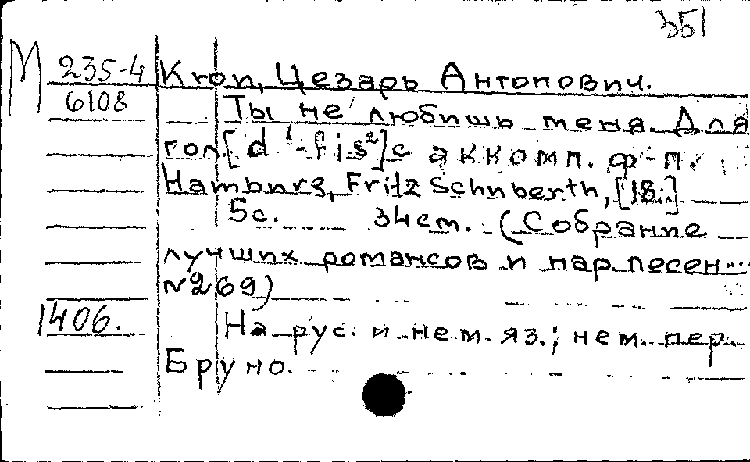 351
М 235-4
6108
Кюи, Цезарь Антонович.
Ты не любишь меня. Для
гол. [d¹-fis²] с аккомп. ф-п.
Hamburg, Fritz Schuberth, [18..]
5с. 34см. (Собрание
лучших романсов и нар. песен...
№269)
1406.
На рус. и нем. яз.; нем. пер.
Бруно.